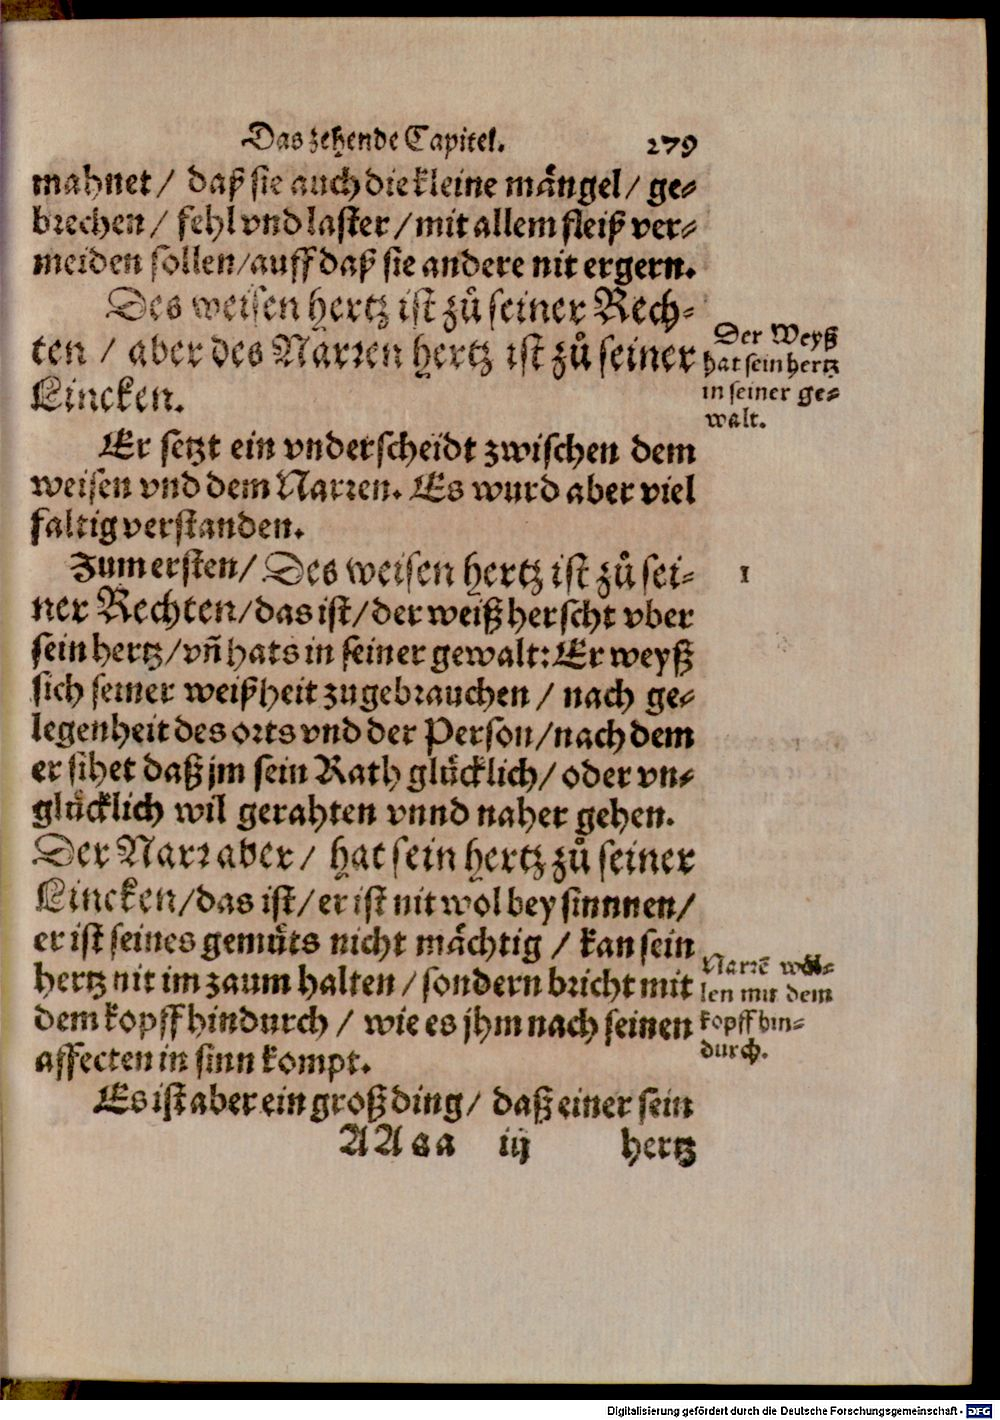 Das zehende Capitel. 279
mahnet / daß sie auch die kleine mängel / ge-
brechen / fehl vnd laster / mit allem fleiß ver-
meiden sollen / auff daß sie andere nit ergern.
Des weisen hertz ist zů seiner Rech-
ten / aber des Narren hertz ist zů seiner
Lincken.
Der Weyß
hat sein hertz
in seiner ge-
walt.
Er setzt ein vnderscheidt zwischen dem
weisen vnd dem Narren. Es wurd aber viel
faltig verstanden.
Zum ersten / Des weisen hertz ist zů sei-
1
ner Rechten / das ist / der weiß herscht vber
sein hertz / vñ hats in seiner gewalt: Er weyß
sich seiner weißheit zugebrauchen / nach ge-
legenheit des orts vnd der Person / nach dem
er sihet daß jm sein Rath glücklich / oder vn-
glücklich wil gerahten vnnd naher gehen.
Der Narr aber / hat sein hertz zů seiner
Lincken / das ist / er ist nit wol bey sinnnen /
er ist seines gemüts nicht mächtig / kan sein
hertz nit im zaum halten / sondern bricht mit
dem kopff hindurch / wie es jhm nach seinen
affecten in sinn kompt.
Narrẽ wöl-
len mit dem
kopff hin-
durch.
Es ist aber ein groß ding / daß einer sein
AAaa iij hertz
Digitalisierung gefördert durch die Deutsche Forschungsgemeinschaft - DFG